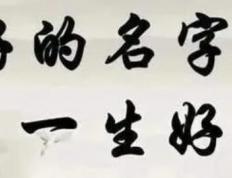 的名字
一生好